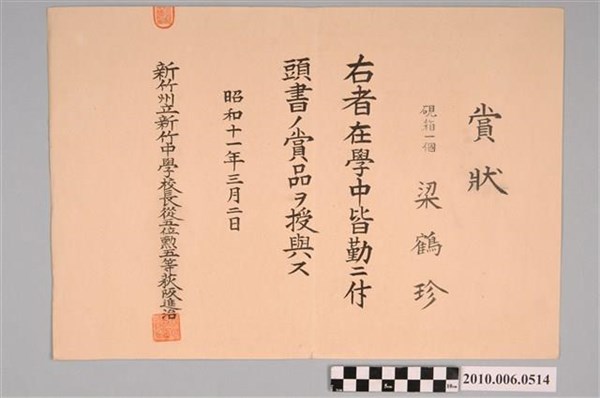 賞狀
硯箱一個
梁鶴珍
右者在學中皆勤ニ付
頭書ノ賞品ヲ授與ス
昭和十一年三月二日
新竹州立新竹中學校長從五位勲五等荻阪進治
5cm
10cm
2010.006.0514